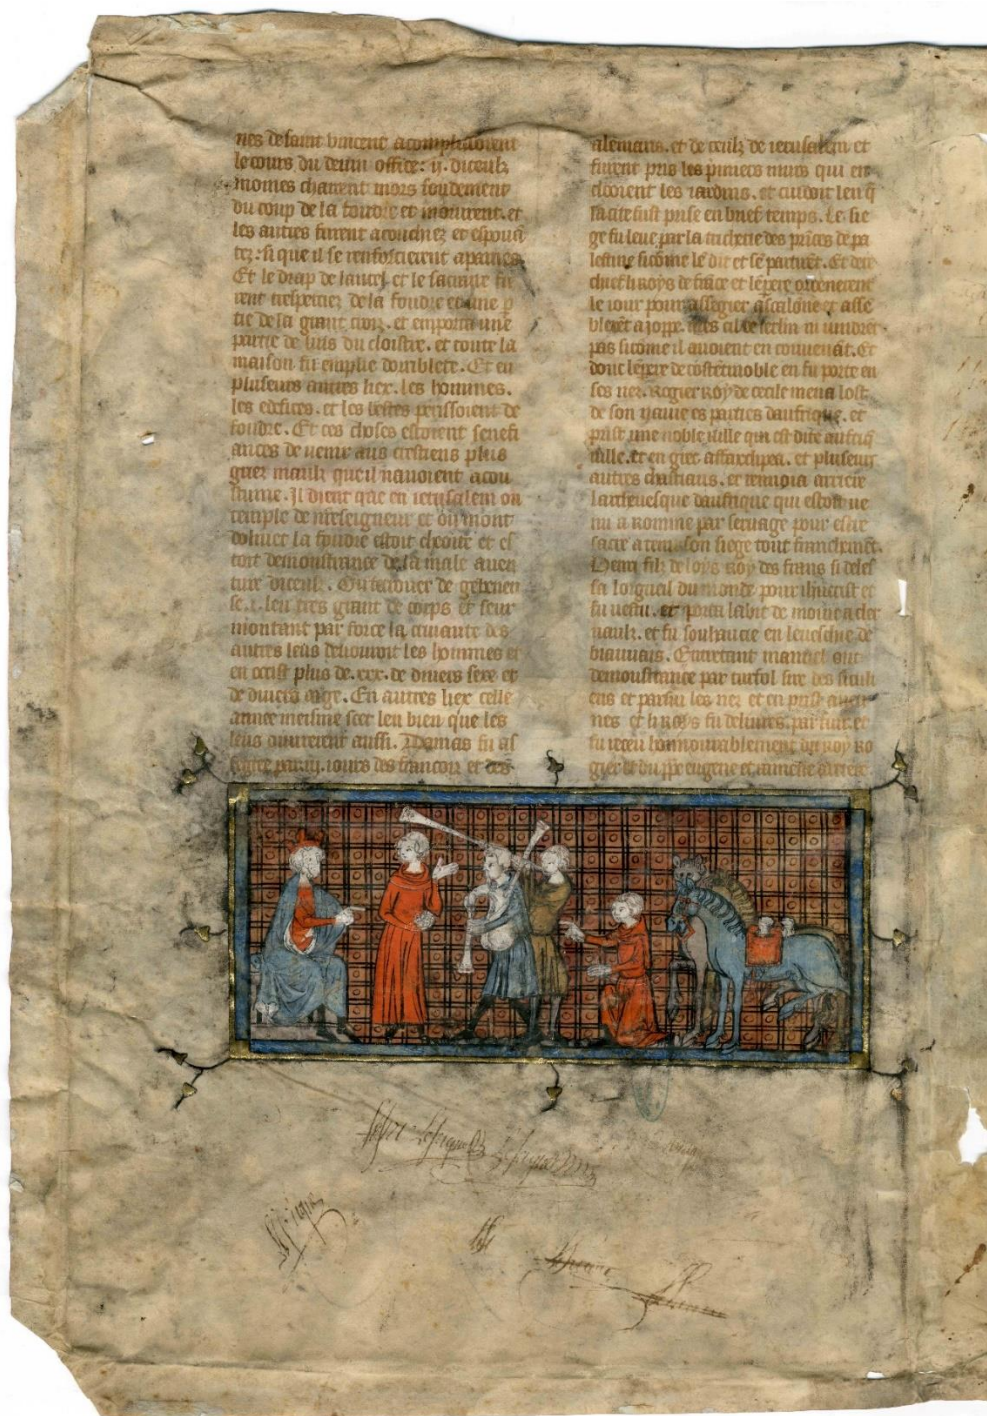 nes de saint vincent acomplissoient
le cours du deuin office: ij. diceulz
moines chairent mors soudement
du coup de la foudre et mourirent. et
les autres furent acouchiez et espouā
tez: si que il se renforcierent a paines
Et le drap de lautel et le sacraire fu
rent tresperciez de la foudre et une p
tie de la grant croiz. et emporta une
partie de bois du cloistre. et toute la
maison fu emplie domblece. Et en
pluseurs autres liex. les hommes.
les edefices. et les bestes perissoient de
foudre. Et ces choses estoient senefi
ances de venir aus crestiens plus
griez maulz que il nauoient acou
stume. Il dient que en ierusalem ou
temple de nreseigneur et ou mont
doliuet la foudre estoit cheoite et es
toit demonstrance de la male auen
ture diceulz. Ou terouer de gebenen
se .i. leu tres grant de corps et seur
montant par force la cruaute des
autres leus deliouroit les hommes et
en occist plus de .xxx. de diuers sexe et
de diuers aage. En autres liex celle
annee meisme scet len bien que les
leus ouurerent aussi. Damas fu as
segiee par iij. iours des francois et des
alemans. et de ceulz de ierusalem et
furent pris les p̄miers murs qui en
clooient les iardins. et cuidoit len q̄
la cite fust prise en brief temps. Le sie
ge fu leue par la tricherie des princes de pa
lestine sicōme le dit et se partirēt. Et der
chief li roys de frāce et lēpere ordenerent
le iour pour assegier ascalone et asse
blerēt a joppe. Mes cil de ierlm ni vindrēt
pas sicōme il auoient en couuenāt. Et
donc lēpere de cōstētinoble en fu porte en
ses nez. Rogier Roy de cecile mena lost
de son nauie es parties daufrique. et
prist une noble uille qui est dite aufriq̄
uille. et en grec affaxelipea. et pluseurs
autres chastiaus. et renuoia arriere
larceuesque daufrique qui estoit ve
nu a Romme par seruage pour estre
sacre a tenir son siege tout franchemēt.
Henri filz de loys Roy des frans si deles
sa lorgueil du monde pour ihucrist et
fu uestu. et porta labit de moine a cler
uaulz. et fu souhaucie en leueschie de
biauuais. Entretant manuel out
demonstrance par turfol sire des sicili
ens et parsui les nez et en prist aucu
nes et li Roys fu deliures. par fuir. et
fu receu honnourablement du Roy Ro
gier et du pp̄e eugene et ramene arriere